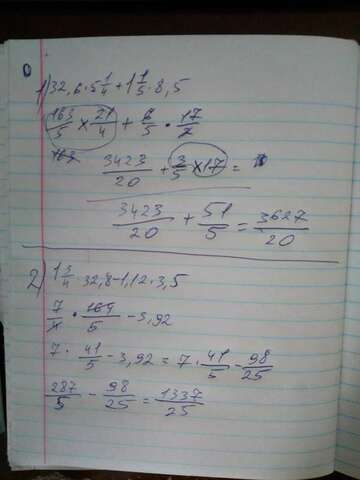 1) 32,6 · 5 1/4 + 1 1/5 · 8,5
163/5 × 21/4 + 6/5 · 17/2
163
3423/20 + 3/5 × 17 =
3423/20 + 51/5 = 3627/20
2) 1 3/4 · 32,8 - 1,12 · 3,5
7/4 · 164/5 - 3,92
7 · 41/5 - 3,92 = 7 · 41/5 - 98/25
287/5 - 98/25 = 1337/25